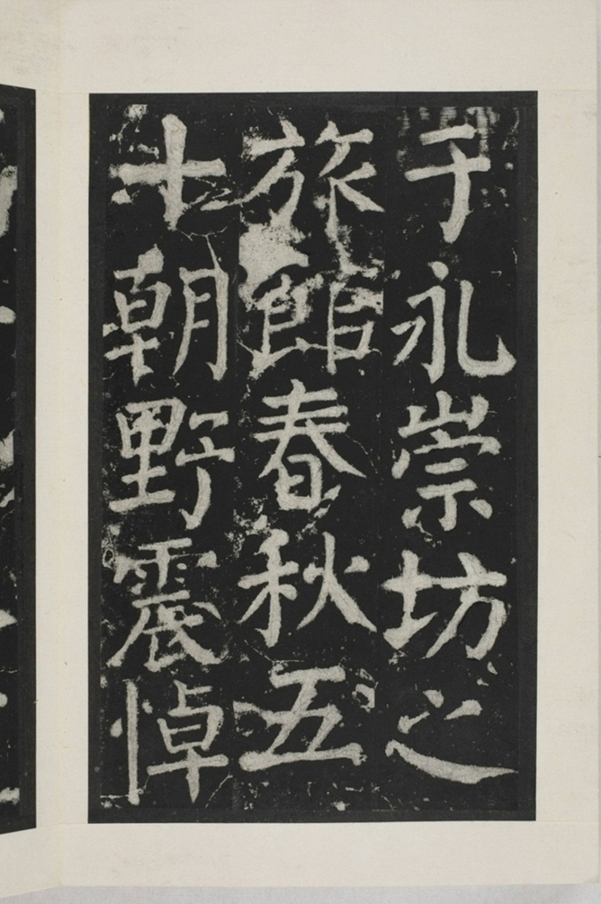 于永崇坊之
旅館春秋五
十朝野震悼